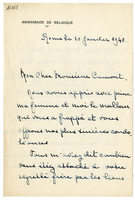 AMBASSADE DE BELGIQUE
Rome le 10 Janvier 1940
Mon Cher Monsieur Cumont,
Nous avons appris avec peine
ma femme et moi le malheur
qui vous a frappé et vous
offrons nos plus sincères condo-
léances.
Vous m'aviez dit combien
vous étiez attaché à votre
regretté frère par les liens